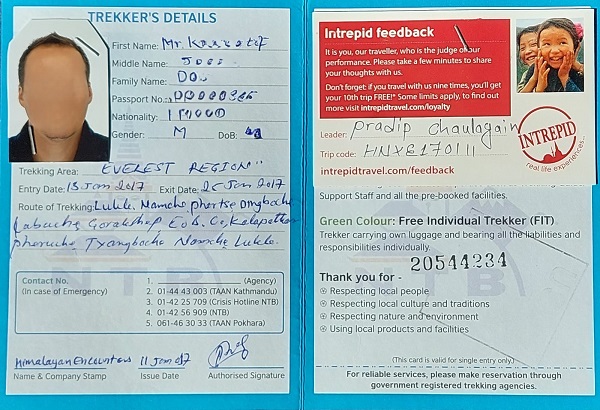 TREKKER'S DETAILS
First Name: Mr.
Middle Name:
Family Name:
Passport No.:
Nationality:
Gender: M DoB:
Trekking Area: EVEREST REGION"
Entry Date: 13 Jan 2017 Exit Date: 25 Jan 2017
Route of Trekking: Lukla. Namche, phortse
Gorakshep
Namche Lukla.
Contact No.
(in case of Emergency)
1. (Agency)
2. 01-44 43 003 (TAAN Kathmandu)
3. 01-42 25 709 (Crisis Hotline NTB)
4. 01-42 56 909 (NTB)
5. 061-46 30 33 (TAAN Pokhara)
Himalayan Encounters 11 Jan 017
Name & Company Stamp Issue Date Authorised Signature
Intrepid feedback
It is you, our traveller, who is the judge of our
performance. Please take a few minutes to share
your thoughts with us.
Don't forget: if you travel with us nine times, you'll get
your 10th trip FREE!* Some limits apply, to find out
more visit intrepidtravel.com/loyalty
Leader: Pradip Chaulagain
Trip code: HNXB170111
intrepidtravel.com/feedback
INTREPID
real life experiences...
Support Staff and all the pre-booked facilities.
Green Colour: Free Individual Trekker (FIT)
Trekker carrying own luggage and bearing all the liabilities and
responsibilities individually.
20544234
Thank you for -
Respecting local people
Respecting local culture and traditions
Respecting nature and environment
Using local products and facilities
(This card is valid for single entry only.)
For reliable services, please make reservation through
government registered trekking agencies.
NTB